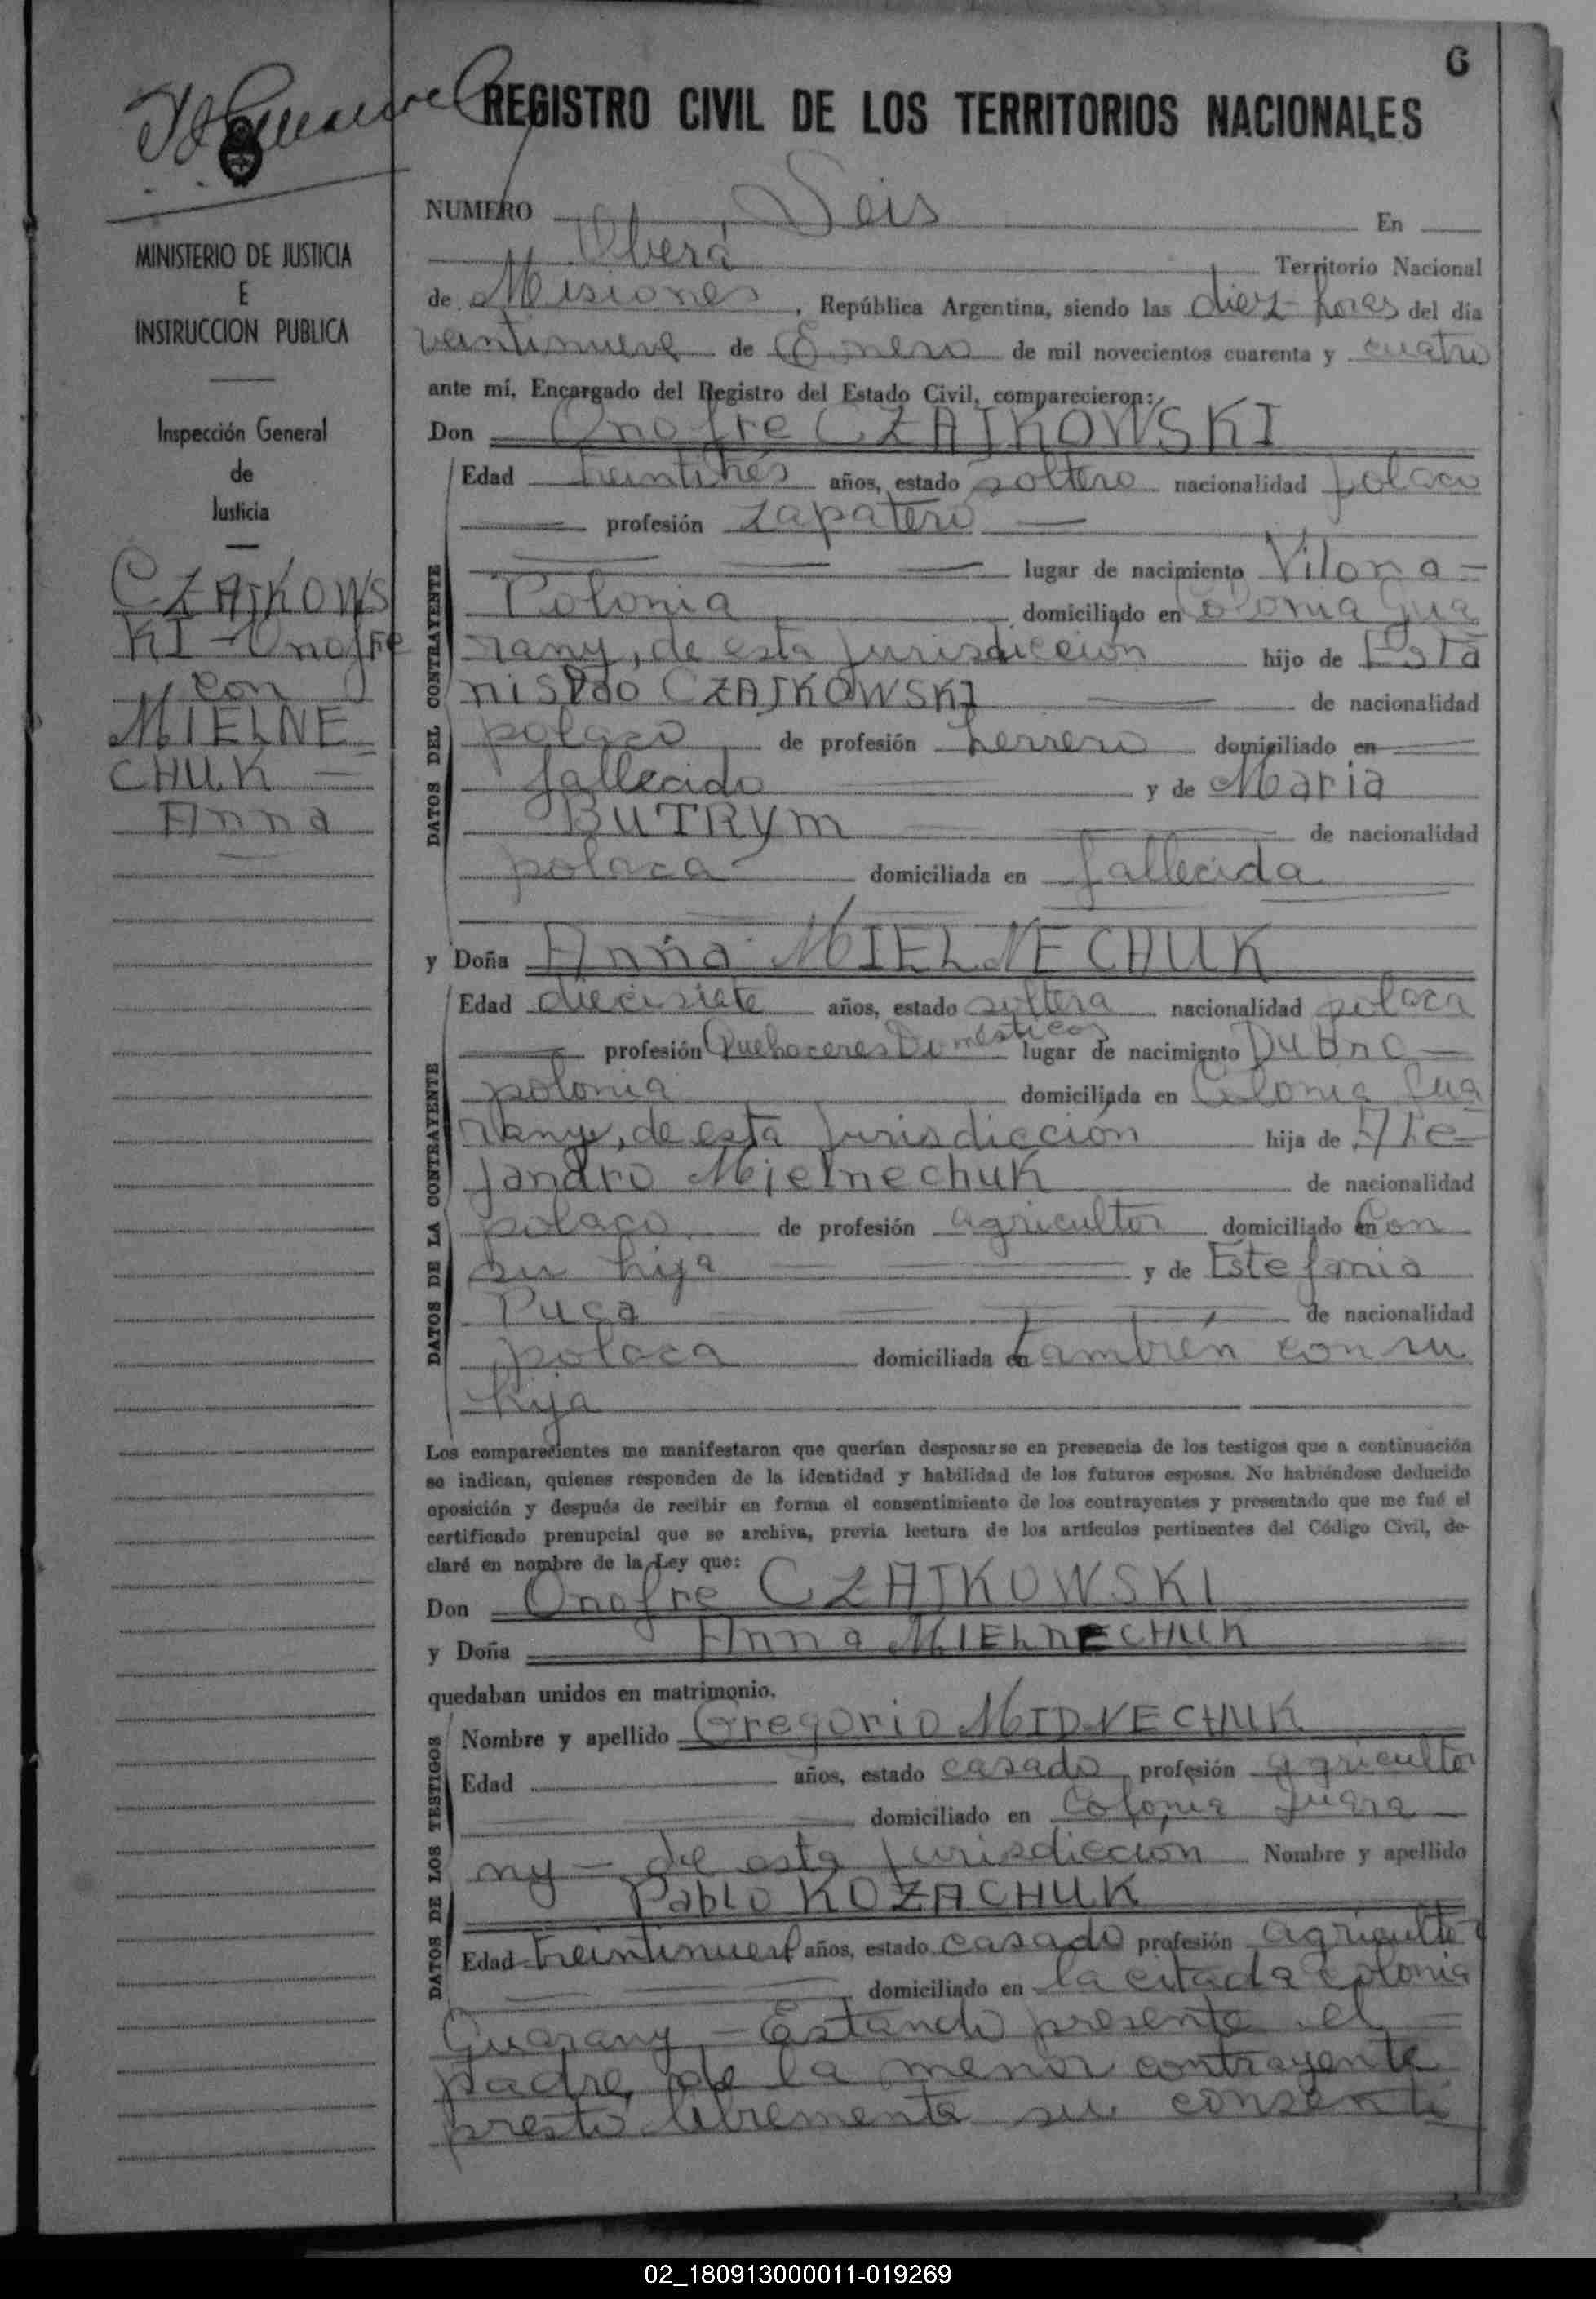 6
REGISTRO CIVIL DE LOS TERRITORIOS NACIONALES
MINISTERIO DE JUSTICIA
E
INSTRUCCION PUBLICA
Inspección General
de
Justicia
CZAJKOWS
KI - Onofre
con
MIELNE
CHUK
Anna
NUMERO Seis En
Oberá Territorio Nacional
de Misiones, República Argentina, siendo las diez horas del día
veintinueve de Enero de mil novecientos cuarenta y cuatro
ante mí, Encargado del Registro del Estado Civil, comparecieron:
Don Onofre CZAJKOWSKI
DATOS DEL CONTRAYENTE
Edad treintitrés años, estado soltero nacionalidad polaco
profesión zapatero
lugar de nacimiento
Polonia domiciliado en Colonia Gua
rany, de esta Jurisdiccion hijo de Esta
nislao CZAJKOWSKI de nacionalidad
polaco de profesión herrero domiciliado en
fallecido y de Maria
BUTRYM de nacionalidad
polaca domiciliada en fallecida
y Doña Anna MIELNECHUK
DATOS DE LA CONTRAYENTE
Edad diecisiete años, estado soltera nacionalidad polaca
profesión Quehaceres Domésticos lugar de nacimiento Dubno
polonia domiciliada en Colonia Gua
rany, de esta Jurisdiccion hija de Ale
jandro Mielnechuk de nacionalidad
polaco de profesión agricultor domiciliado en Con
su hija y de Estefania
Puca de nacionalidad
polaca domiciliada en tambien con su
hija
Los comparecientes me manifestaron que querían desposarse en presencia de los testigos que a continuación
se indican, quienes responden de la identidad y habilidad de los futuros esposos. No habiéndose deducido
oposición y después de recibir en forma el consentimiento de los contrayentes y presentado que me fué el
certificado prenupcial que se archiva, previa lectura de los artículos pertinentes del Código Civil, de-
claré en nombre de la Ley que:
Don Onofre CZAJKOWSKI
y Doña Anna MIELNECHUK
quedaban unidos en matrimonio.
DATOS DE LOS TESTIGOS
Nombre y apellido Gregorio
Edad años, estado casado profesión agricultor
domiciliado en Colonia Guara
ny - de esta Jurisdiccion Nombre y apellido
Pablo KOZACHUK
Edad treintinueve años, estado casado profesión agricultor
domiciliado en la citada colonia
Guarany - Estando presente el
padre de la menor contrayente
presto libremente su consenti
02_180913000011-019269